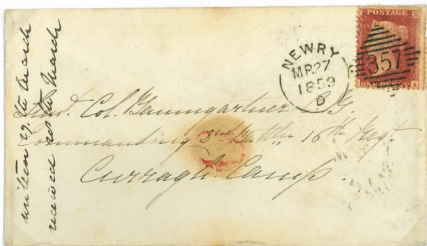 written 27th March
received 28th March
POSTAGE
NEWRY
MR 27
1859
B
357
Lieut. Col. Baumgartner C.B.
Commanding 2nd Battn 16th Regt
Curragh Camp